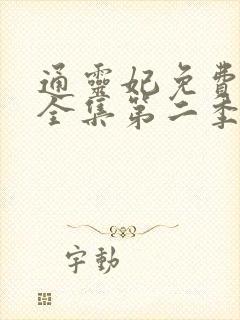 通靈妃免費
全集第二季
字動